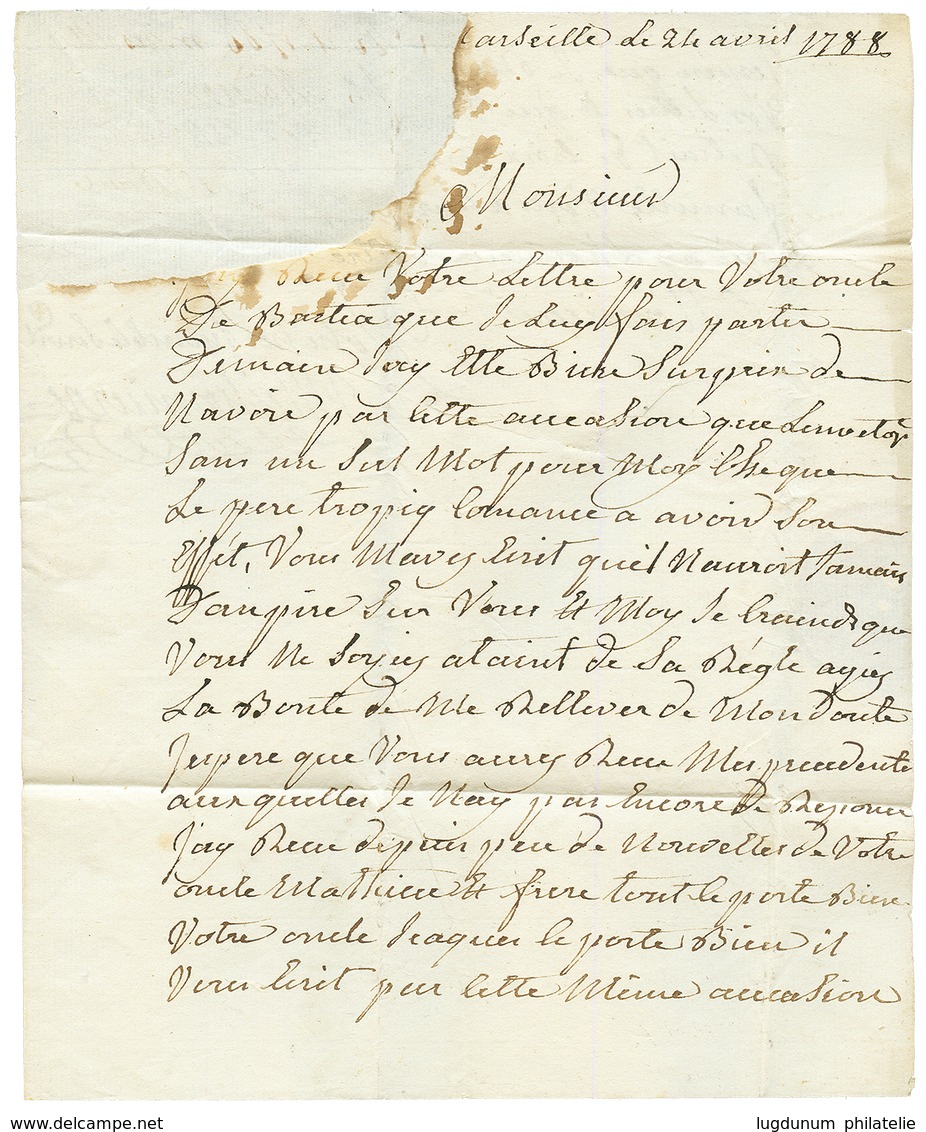 arseille le 24 avril 1788
Monsieur
Jay Receu Votre Lettre pour Votre oncle
De Bastia que Je Luy fais partir
Demain Jay Ette Bien Surpris de
Navoir par Cette aucasion que
Sans un Sul Mot pour Moy Esse que
Le pere tropiq Comance a avoir Son
Effét, Vous Mavez Ecrit quil Nauroit Jamais
Danpire Sur Vous Et Moy Je Crainds que
Vous Ne Soyies ataint de Sa Régle ayies
La Bonte de Me Rellever de Mon Doute
Jespere que Vous aures Receu Mes precedente
auxquelles Je Nay pas Encore De Reponce
Jay Receu depuis peu de Nouvelles de Votre
oncle Mathieu Et frere tout Ce porte Bien
Votre oncle Jeaques Ce porte Bien il
Vous Ecrit par Cette Mème aucasion
lugdunum philatelie
www.delcampe.net